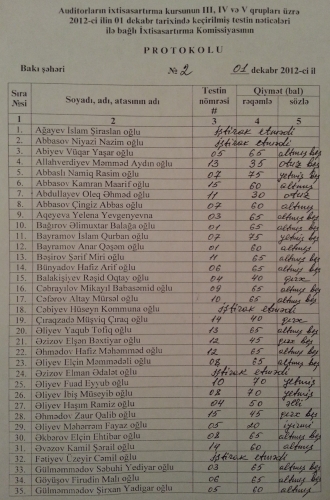 Auditorların ixtisasartırma kursunun III, IV və V qrupları üzrə
2012-ci ilin 01 dekabr tarixində keçirilmiş testin nəticələri
ilə bağlı İxtisasartırma Komissiyasının
PROTOKOLU
Bakı şəhəri № 2 01 dekabr 2012-ci il
Sıra №si Soyadı, adı, atasının adı Testin nömrəsi # Qiymət (bal) rəqəmlə sözlə
1 2 3 4 5
1. Ağayev İslam Şiraslan oğlu iştirak etmədi
2. Abbasov Niyazi Nazim oğlu iştirak etmədi
3. Abıyev Vüqar Yaşar oğlu 05 65 altmış beş
4. Allahverdiyev Məmməd Aydın oğlu 13 35 otuz beş
5. Abbaslı Namiq Rasim oğlu 07 75 yetmiş beş
6. Abbasov Kamran Maarif oğlu 15 60 altmış
7. Abdullayev Oleq Əhməd oğlu 11 30 otuz
8. Abbasov Çingiz Abbas oğlu 07 60 altmış
9. Aqeyeva Yelena Yevgenyevna 03 65 altmış beş
10. Bağırov Əlimuxtar Balağa oğlu 01 65 altmış beş
11. Bayramov İslam Qurban oğlu 07 75 yetmiş beş
12. Bayramov Anar Qəşəm oğlu 01 60 altmış
13. Bəşirov Şərif Miri oğlu 11 65 altmış beş
14. Bünyadov Hafiz Arif oğlu 06 65 altmış beş
15. Balakişiyev Rəşid Oqtay oğlu 04 40 qırx
16. Cəbrayılov Mikayıl Babasəmid oğlu 09 65 altmış beş
17. Cəfərov Altay Mürsəl oğlu 10 65 altmış beş
18. Cəbiyev Hüseyn Kommuna oğlu iştirak etmədi
19. Çıraqzadə Müşviq Çıraq oğlu 14 40 qırx
20. Əliyev Yaqub Tofiq oğlu 13 65 altmış beş
21. Əzizov Elşən Bəxtiyar oğlu 12 45 qırx beş
22. Əhmədov Hafiz Məhəmməd oğlu 12 65 altmış beş
23. Əliyev Elçin Məhəmmədəli oğlu 08 65 altmış beş
24. Əzizov Elman Ədalət oğlu iştirak etmədi
25. Əliyev Fuad Eyyub oğlu 10 70 yetmiş
26. Əliyev İbiş Müseyib oğlu 08 70 yetmiş
27. Əliyev Haşım Rəmiz oğlu 04 50 əlli
28. Əhmədov Zaur Qalib oğlu 15 45 qırx beş
29. Əliyev Məhərrəm Fəyaz oğlu 05 20 iyirmi
30. Əkbərov Elçin Ehtibar oğlu 08 65 altmış beş
31. Əvəzov Kamil Şərail oğlu 14 60 altmış
32. Fətiyev Üzeyir Cəmil oğlu iştirak etmədi
33. Gülməmmədov Səbuhi Yediyar oğlu 03 65 altmış beş
34. Göyüşov Firudin Malı oğlu 06 65 altmış beş
35. Gülməmmədov Şirxan Yadigar oğlu 05 60 altmış